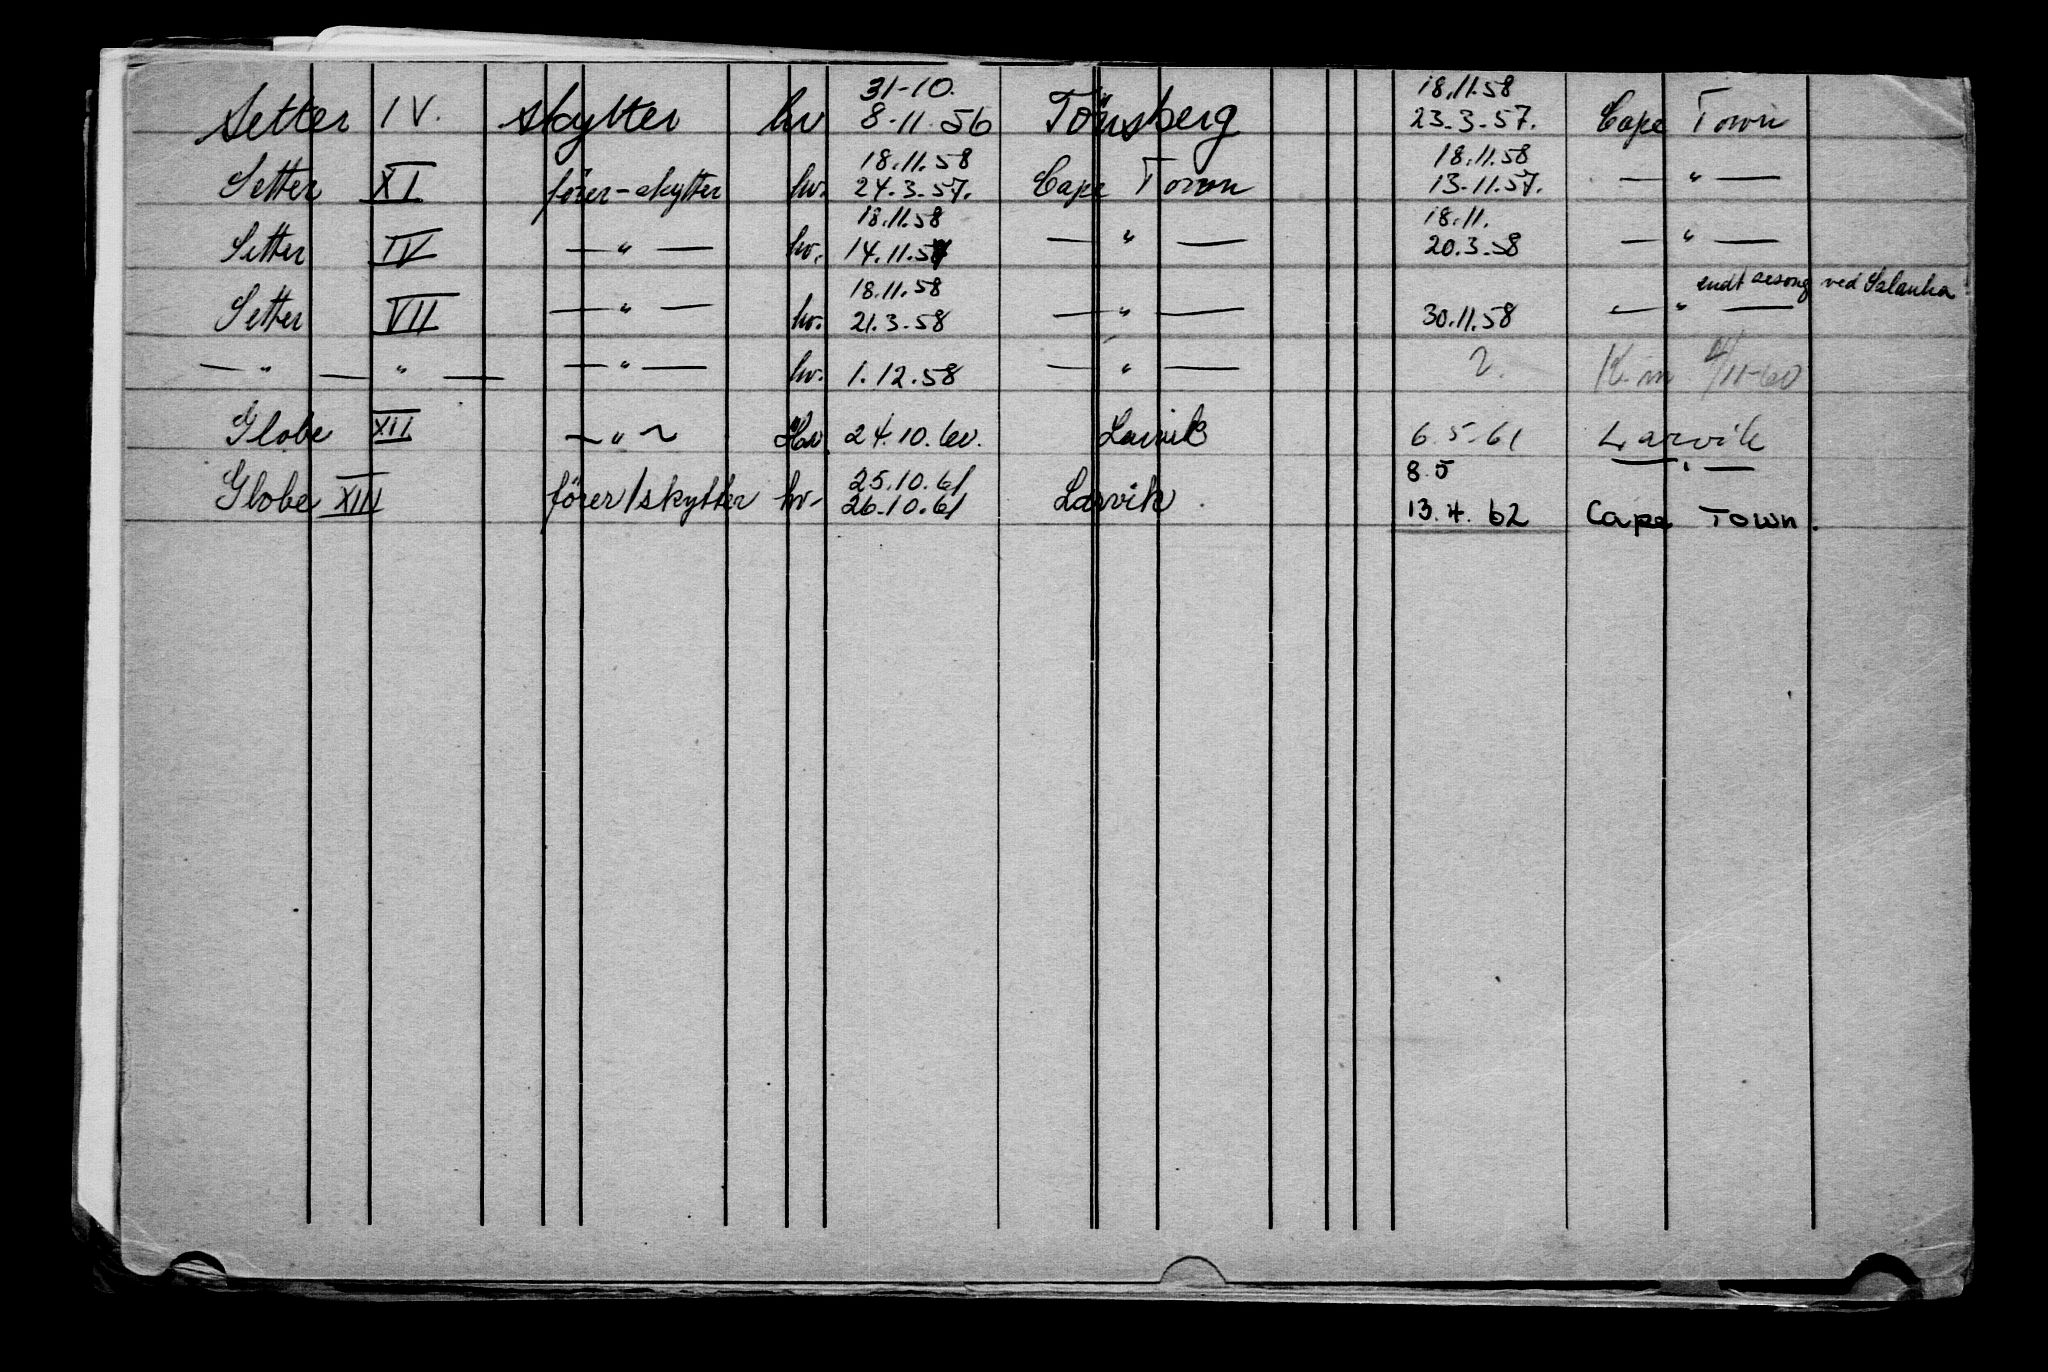 Setter IV. skytter hv 31-10. 8-11-56 Tönsberg 18.11.58 23-3-57. Cape Town
Setter XI förer-skytter hv. 18.11.58 24.3-57. Cape Town 18.11.58 13-11.57. — " —
Setter IV — " — hv. 18.11.58 14.11.57 — " — 18.11. 20.3-58 — " —
endt sesong ved
Setter VII — " — hv. 18.11.58 21.3-58 — " — 30.11.58 — " —
— " — " — — " — hv. 1.12.58 — " — 2. K. m /11-60
Globe XII — " ~ Hv 24.10.60. Larvik 6.5-61 Larvik
Globe XIII förer/skytter hv- 25.10.61 26.10.61 Larvik. 8.5 — " —
13.4.62 Cape Town.